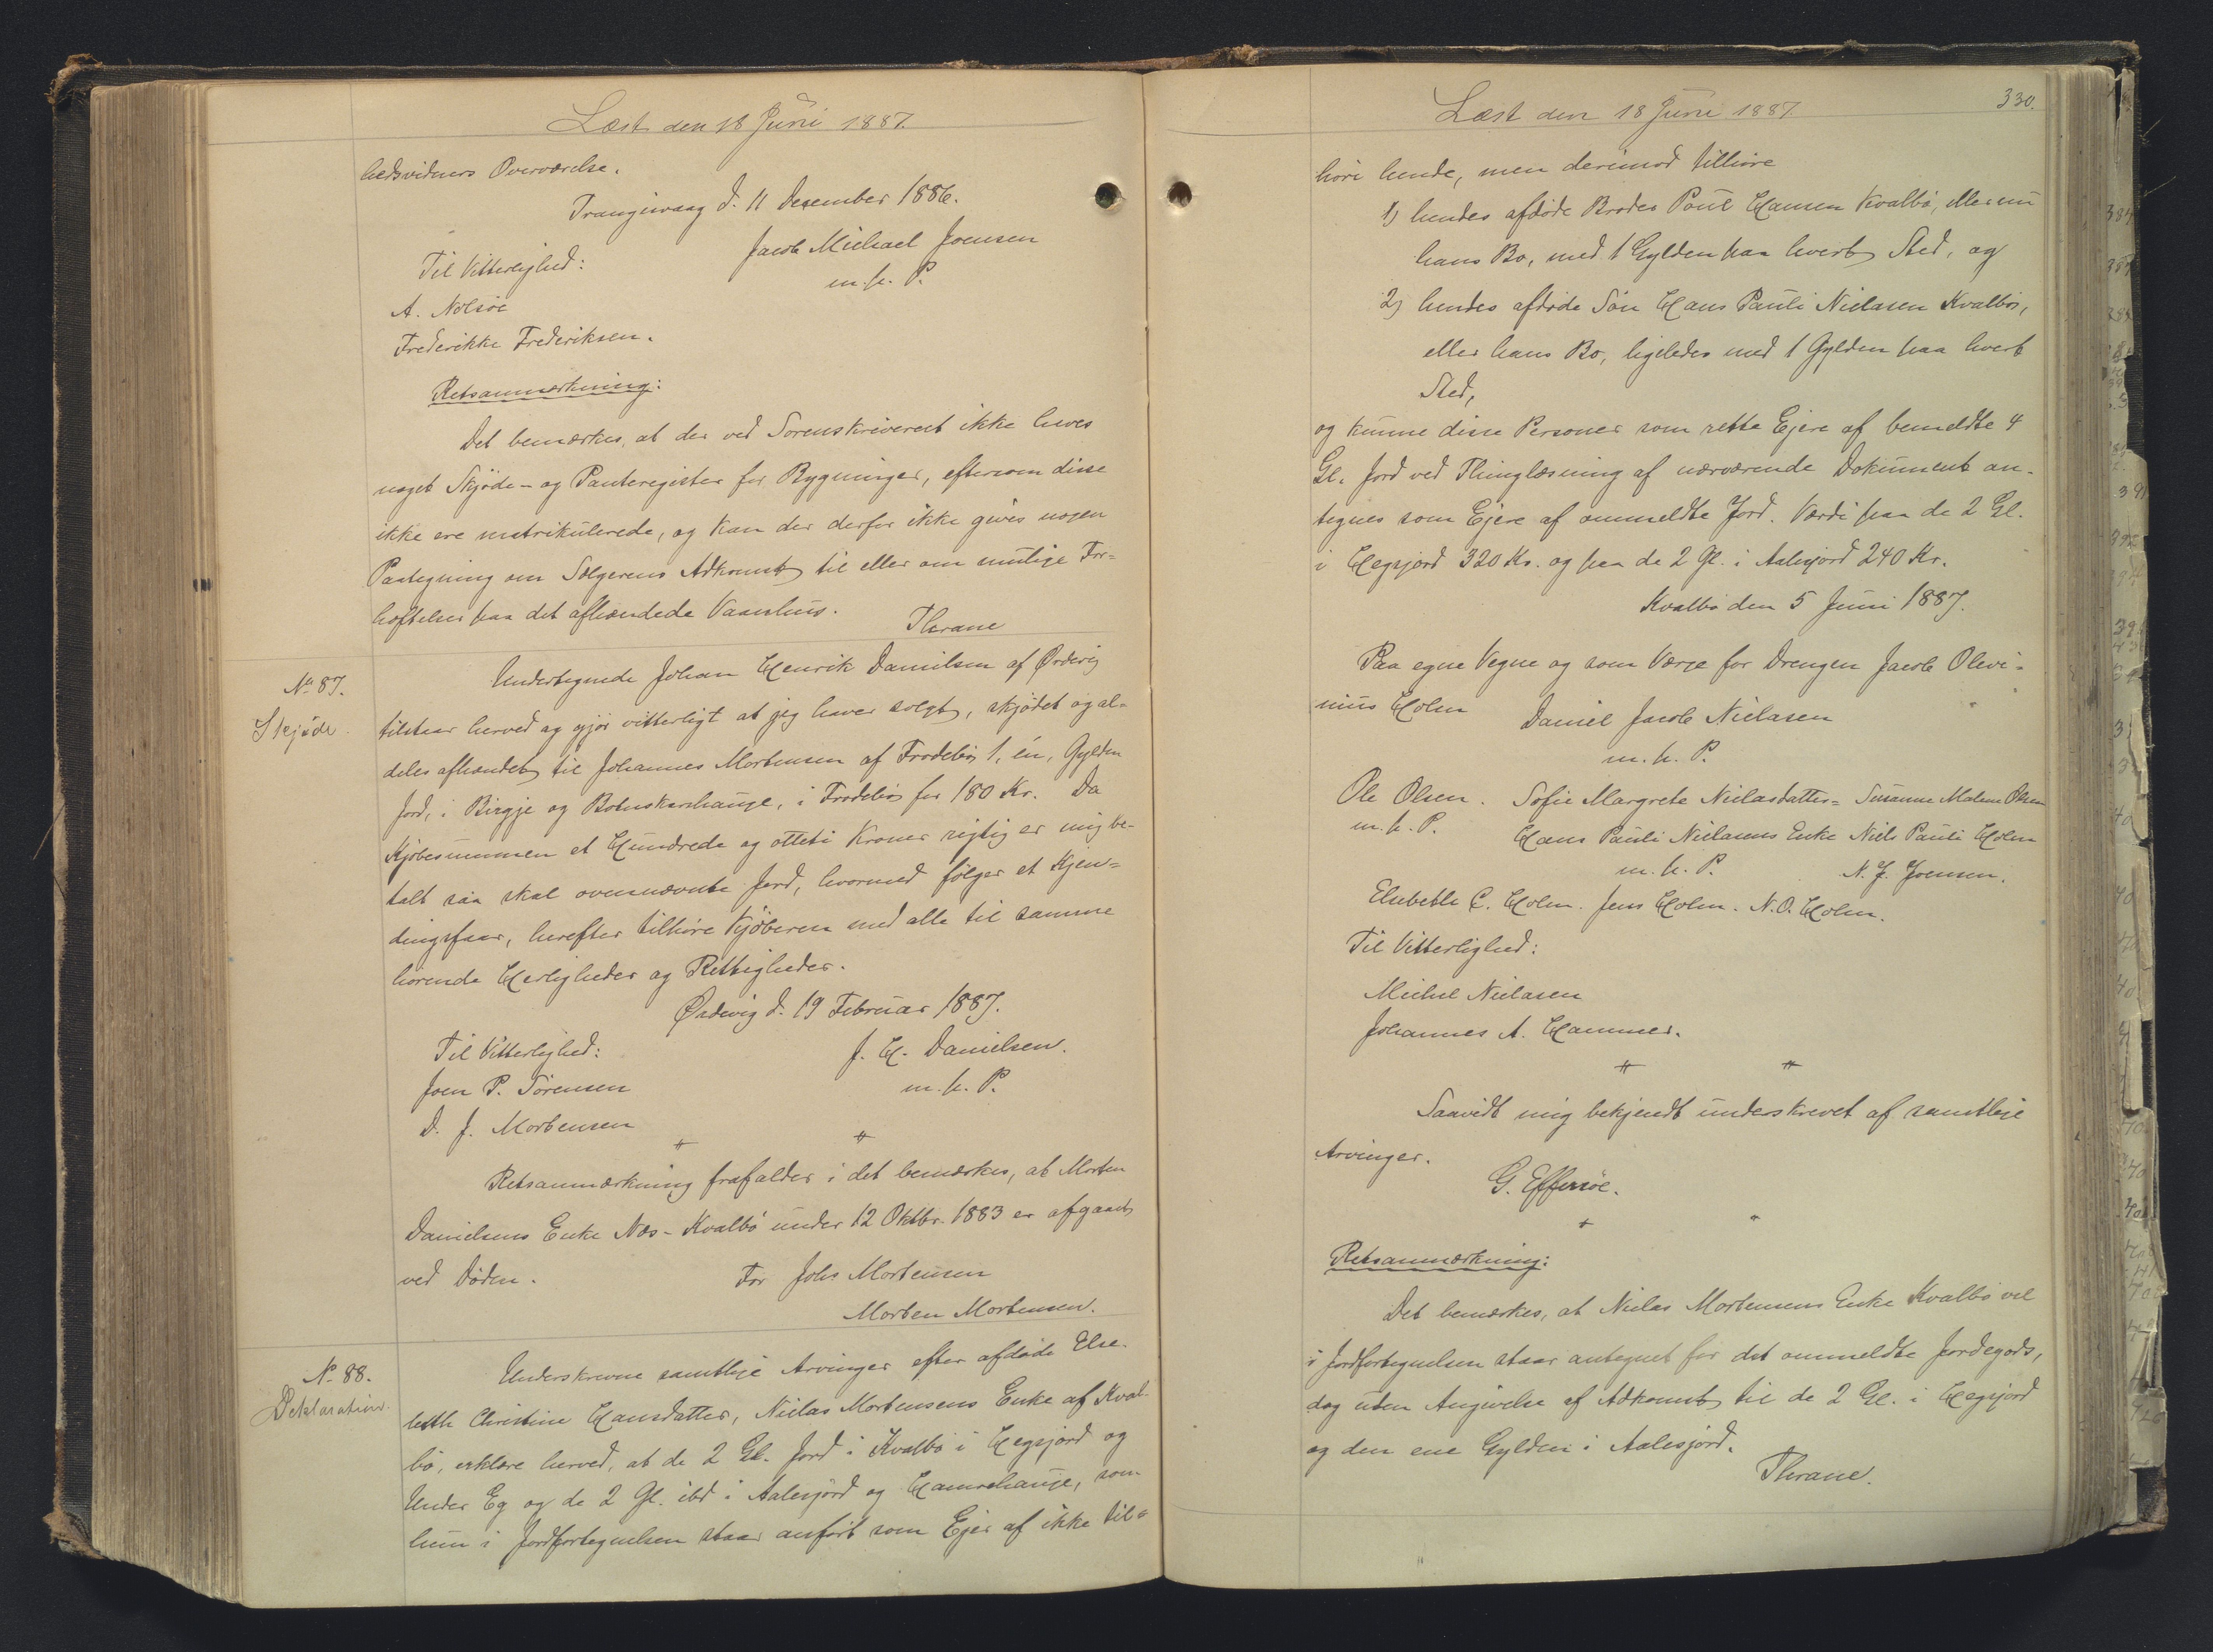 Læst den 18 Juni 1887.
hedsvidners Overværelse.
Trangisvaag d. 11 Desember 1886.
Til Vitterlighed:
Jacob Michael Joensen
m. f. P.
A. Nolsøe
Frederikke Frederiksen.
Retsanmærkning:
Det bemærkes, at der ved Sorenskriveriet ikke haves
noget Skjøde- og Panteregister for Bygninger, eftersom disse
ikke ere matrikulerede, og kan der derfor ikke gives nogen
Paategning om Sælgerens Adkomst til eller om mulige For-
hæftelser paa det afhændede Vaanhus.
Thrane
No 87.
Skjøde.
Undertegnede Johan Henrik Danielsen af Ørdevig
tilstaar herved og gjør vitterligt at jeg haver solgt, skjødet og al-
deles afhændet til Johannes Mortensen af Frodebø 1, én, Gylden
Jord, i Birgje og Botnskarshauge, i Frodebø for 180 Kr. Da
Kjøbesummen et Hundrede og otteti Kroner rigtig er mig be-
talt saa skal ovennævnte Jord, hvormed følger et Kjen-
dingsfaar, herefter tilhøre Kjøberen med alle til samme
hørende Herligheder og Rettigheder.
Ørdevig d. 19 Februar 1887.
Til Vitterlighed:
J. H. Danielsen.
Joen P. Sørensen
m. f. P.
D. J. Mortensen
Retsanmærkning frafaldes i det bemærkes, at Morten
Danielsens Enke Næs-Kvalbø under 12 Oktbr. 1883 er afgaaet
ved Døden.
For Johs Mortensen
Morten Mortensen.
No 88.
Deklaration.
Underskrevne samtlige Arvinger efter afdøde Else-
beth Christine Hansdatter, Nielas Mortensens Enke af Kval-
bø, erklære herved, at de 2 Gl. Jord i Kvalbø i Hegsjord og
Under Eg og de 2 Gl. ibd i Aalesjord og Hamrehauge, som
hun i Jordfortegnelsen staar anført som Ejer af ikke til-
330.
Læst den 18 Juni 1887.
høre hende, men derimod tilhøre
1) hendes afdøde Broder Poul Hansen Kvalbø, eller nu
hans Bo, med 1 Gylden paa hvert Sted, og
2) hendes afdøde Søn Hans Pauli Nielasen Kvalbø,
eller hans Bo, ligeledes med 1 Gylden paa hvert
Sted,
og kunne disse Personer som rette Ejere af bemeldte 4
Gl. Jord ved Thinglæsning af nærværende Dokument an-
tegnes som Ejere af ommeldte Jord. Værdi paa de 2 Gl.
i Hegsjord 320 Kr. og paa de 2 Gl. i Aalesjord 240 Kr.
Kvalbø den 5 Juni 1887.
Paa egne Vegne og som Værge for Drengen Jacob Olevi-
nius Holm
Daniel Jacob Nielasen
m. f. P.
Ole Olsen. Sofie Margrete Nielasdatter= Susanne Malene Olsen
m. f. P. Hans Pauli Nielasens Enke Niels Pauli Holm
m. f. P. N. J. Joensen.
Elsebeth C. Holm. Jens Holm. N. O. Holm.
Til Vitterlighed:
Michel Nielasen
Johannes A. Hammer.
Saavidt mig bekjendt underskrevet af samtlige
Arvinger.
G. Effersøe.
Retsanmærkning:
Det bemærkes, at Nielas Mortensens Enke Kvalbø vel
i Jordfortegnelsen staar antegnet for det ommeldte Jordegods,
dog uden Angivelse af Adkomst til de 2 Gl. i Hegsjord
og den ene Gylden i Aalesjord.
Thrane.